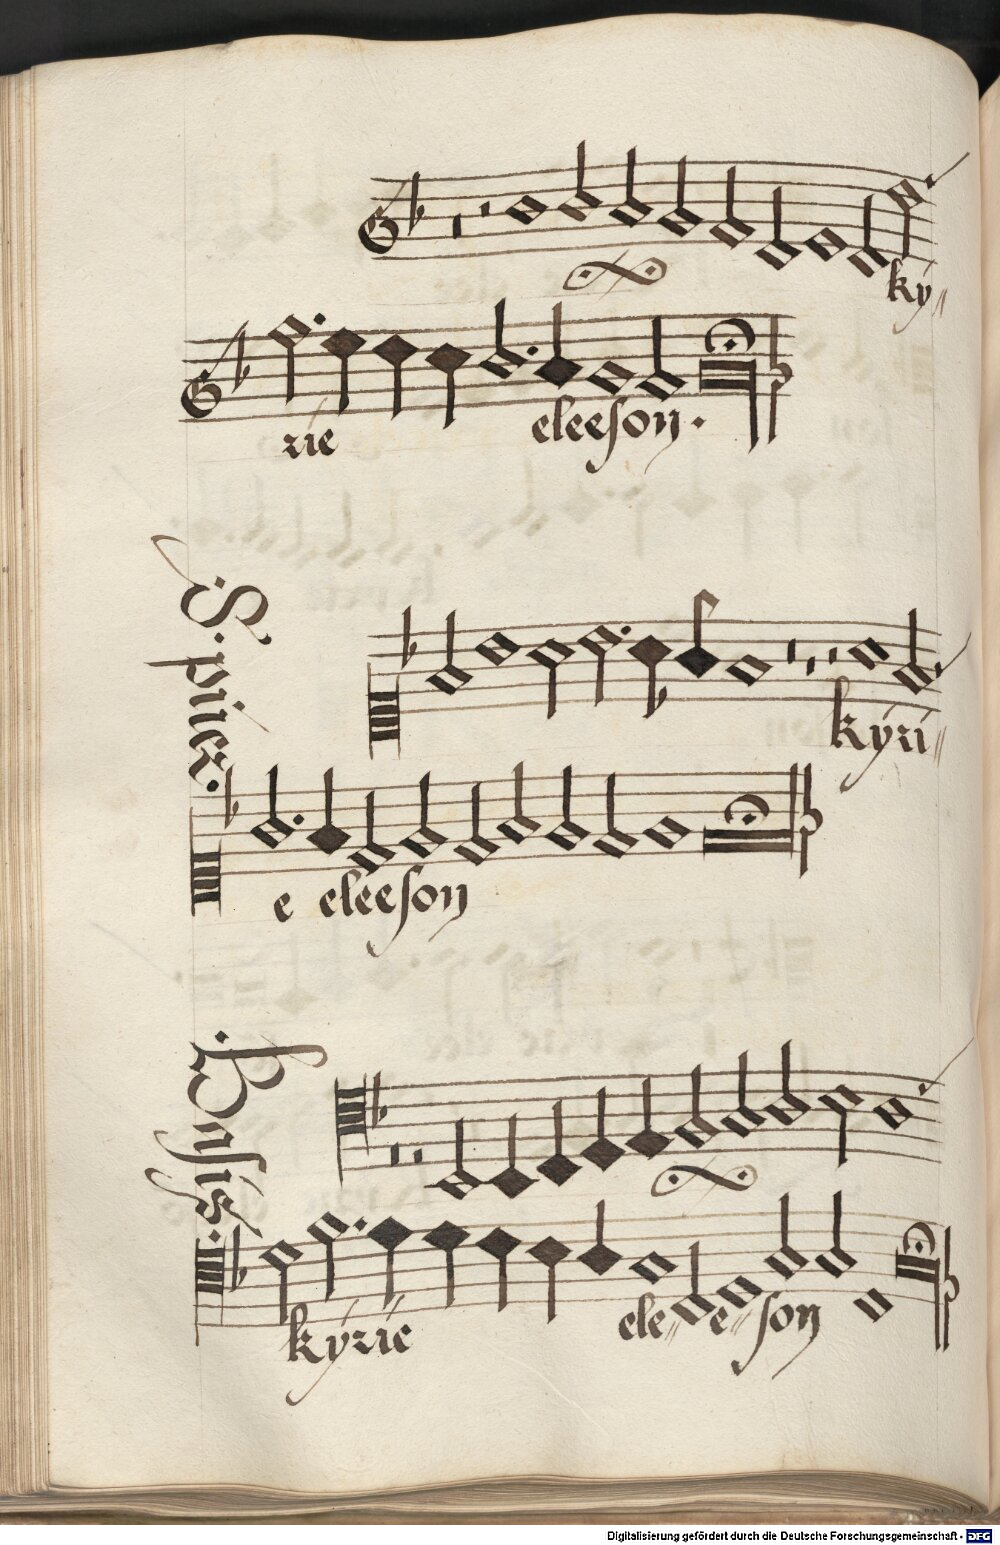 ky
rie eleeson.
S. picz.
kyri
e eleeson
Basis.
kyrie ele e son
Digitalisierung gefördert durch die Deutsche Forschungsgemeinschaft - DFG